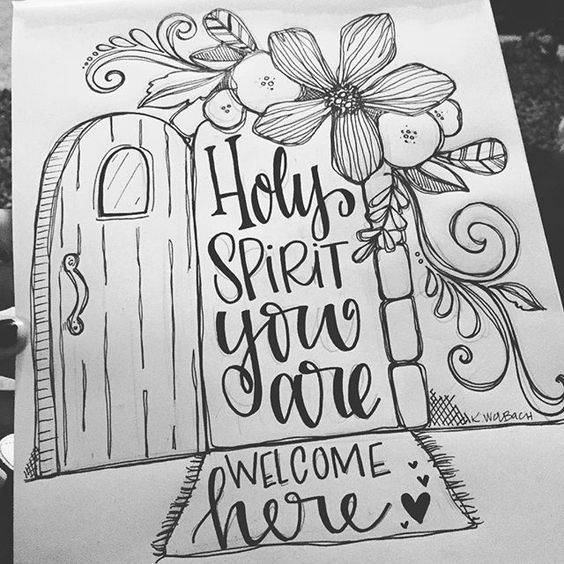 Holy
SPiRiT
you
are
WELCOME
here
K WOLBACH